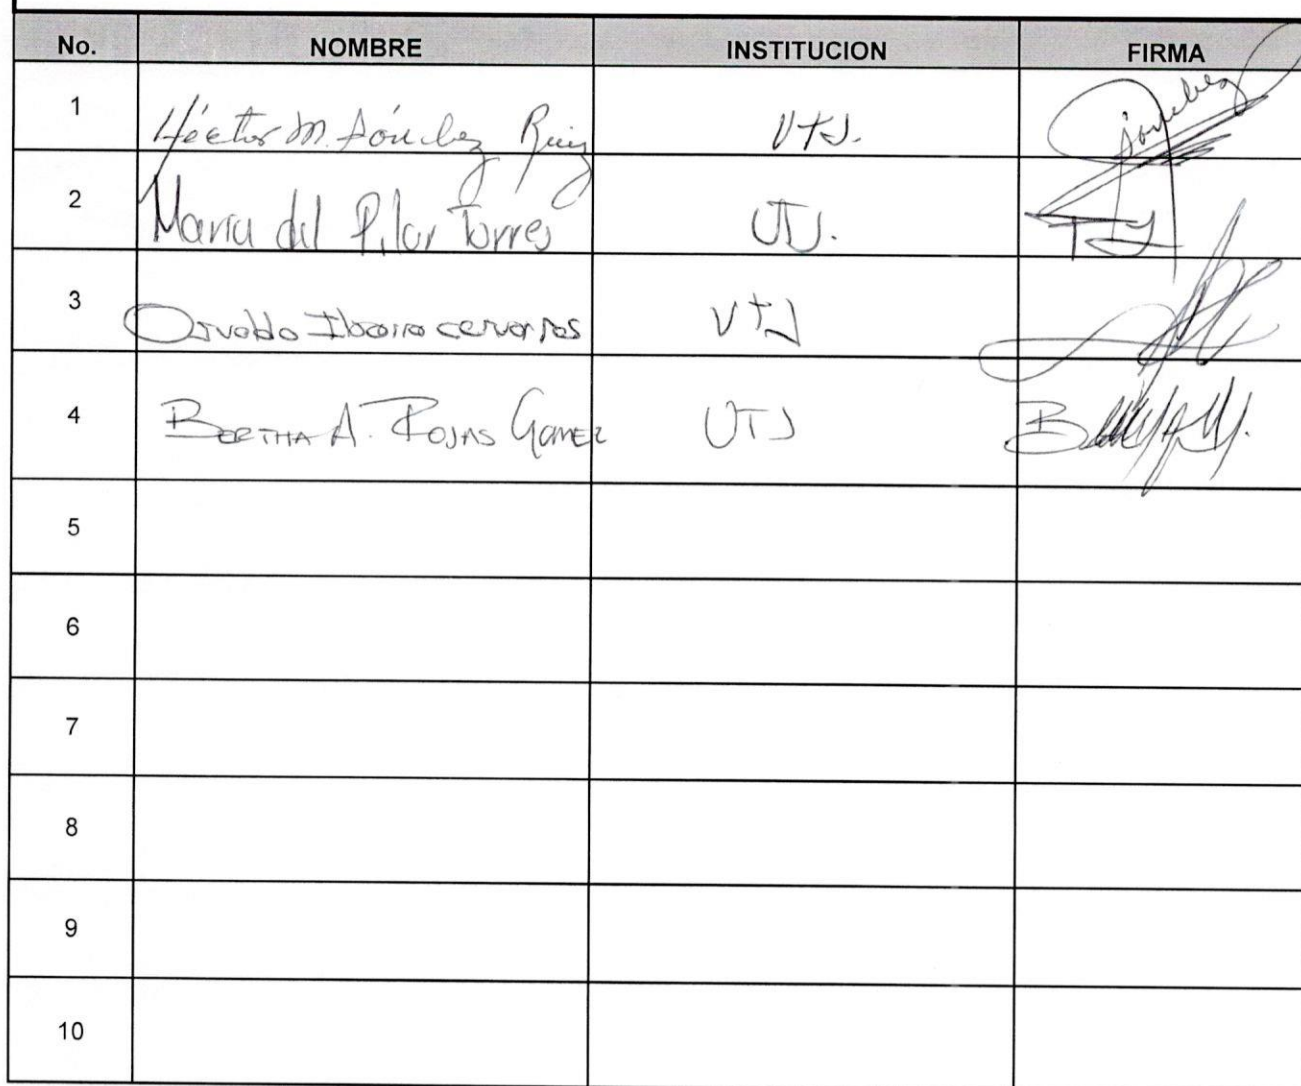 No. NOMBRE INSTITUCION FIRMA
1 Héctor M. Sánchez Ruiz UTJ. Sánchez
2 María del Pilar Torres UTJ.
3 Osvaldo Ibarra cervantes UTJ
4 BERTHA A. ROJAS GOMEZ UTJ
5
6
7
8
9
10